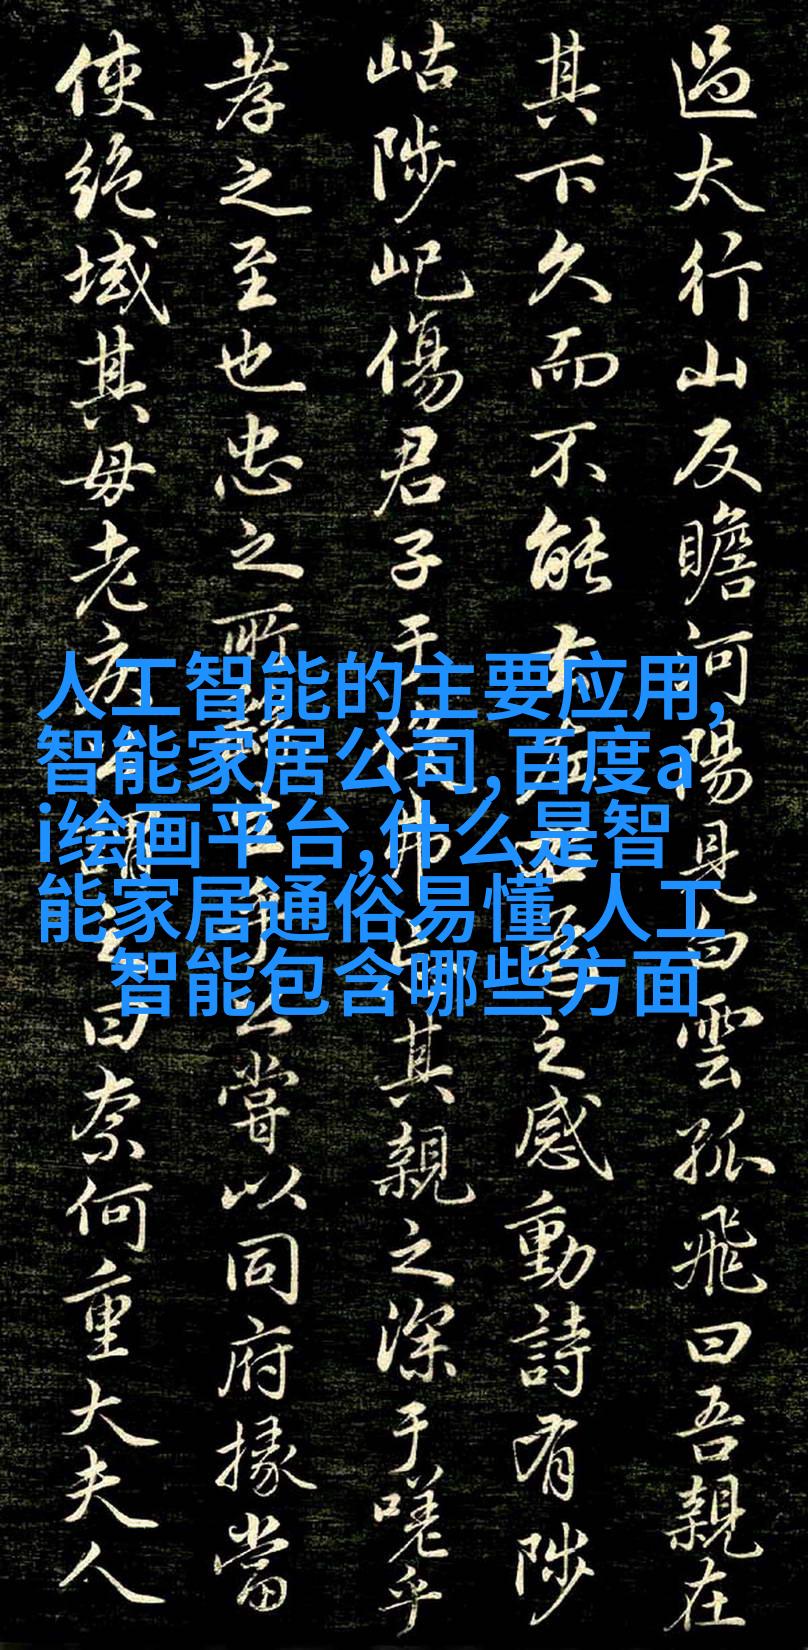 過太行山反瞻河陽見白雲孤飛曰吾親在
其下久而不能左右為之感動詩有陟
岵陟屺傷君子于役弗忘其親之深于嗟乎
孝之至也忠之所生乎公嘗以同府掾當
使絕域其母老疾公謂之曰奈何重大夫人
人工智能的主要应用,
智能家居公司,百度a
i绘画平台,什么是智
能家居通俗易懂,人工
智能包含哪些方面